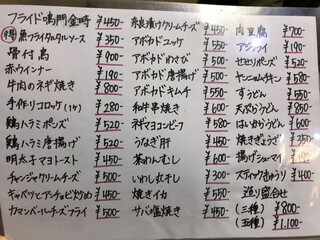 フライド鳴門金時 ¥450-
魚フライタルタルソース ¥350-
骨付鳥 ¥900-
赤ウインナー ¥190-
牛肉のネギ焼き ¥800-
手作りコロッケ(1ケ) ¥280-
鶏ハラミポンズ ¥520-
鶏ハラミ唐揚げ ¥520-
明太子マヨトースト ¥450-
チャンジャクリームチーズ ¥600-
キャベツとアンチョビ炒め ¥450-
カマンベールチーズフライ ¥500-
奈良漬けクリームチーズ ¥450-
アボカドユッケ ¥550-
アボカドわさび ¥500-
アボカド唐揚げ ¥500-
アボカドキムチ ¥550-
和牛串焼き ¥600-
ネギマヨコンビーフ ¥580-
うなぎ肝 ¥450-
茶わんむし ¥600-
いわし丸干し ¥300-
焼きイカ ¥550-
サバ塩焼き ¥450-
肉豆腐 ¥700-
アジフライ ¥190-
せせりポンズ ¥520-
ヤンニョムチキン ¥580-
すうどん ¥550-
天ぷらうどん ¥850-
はいからうどん ¥600-
焼きぎょうざ ¥350-
揚げシューマイ ¥190-
スティックきゅうり ¥400-
造り盛合せ
(三種) ¥800-
(五種) ¥1.100-